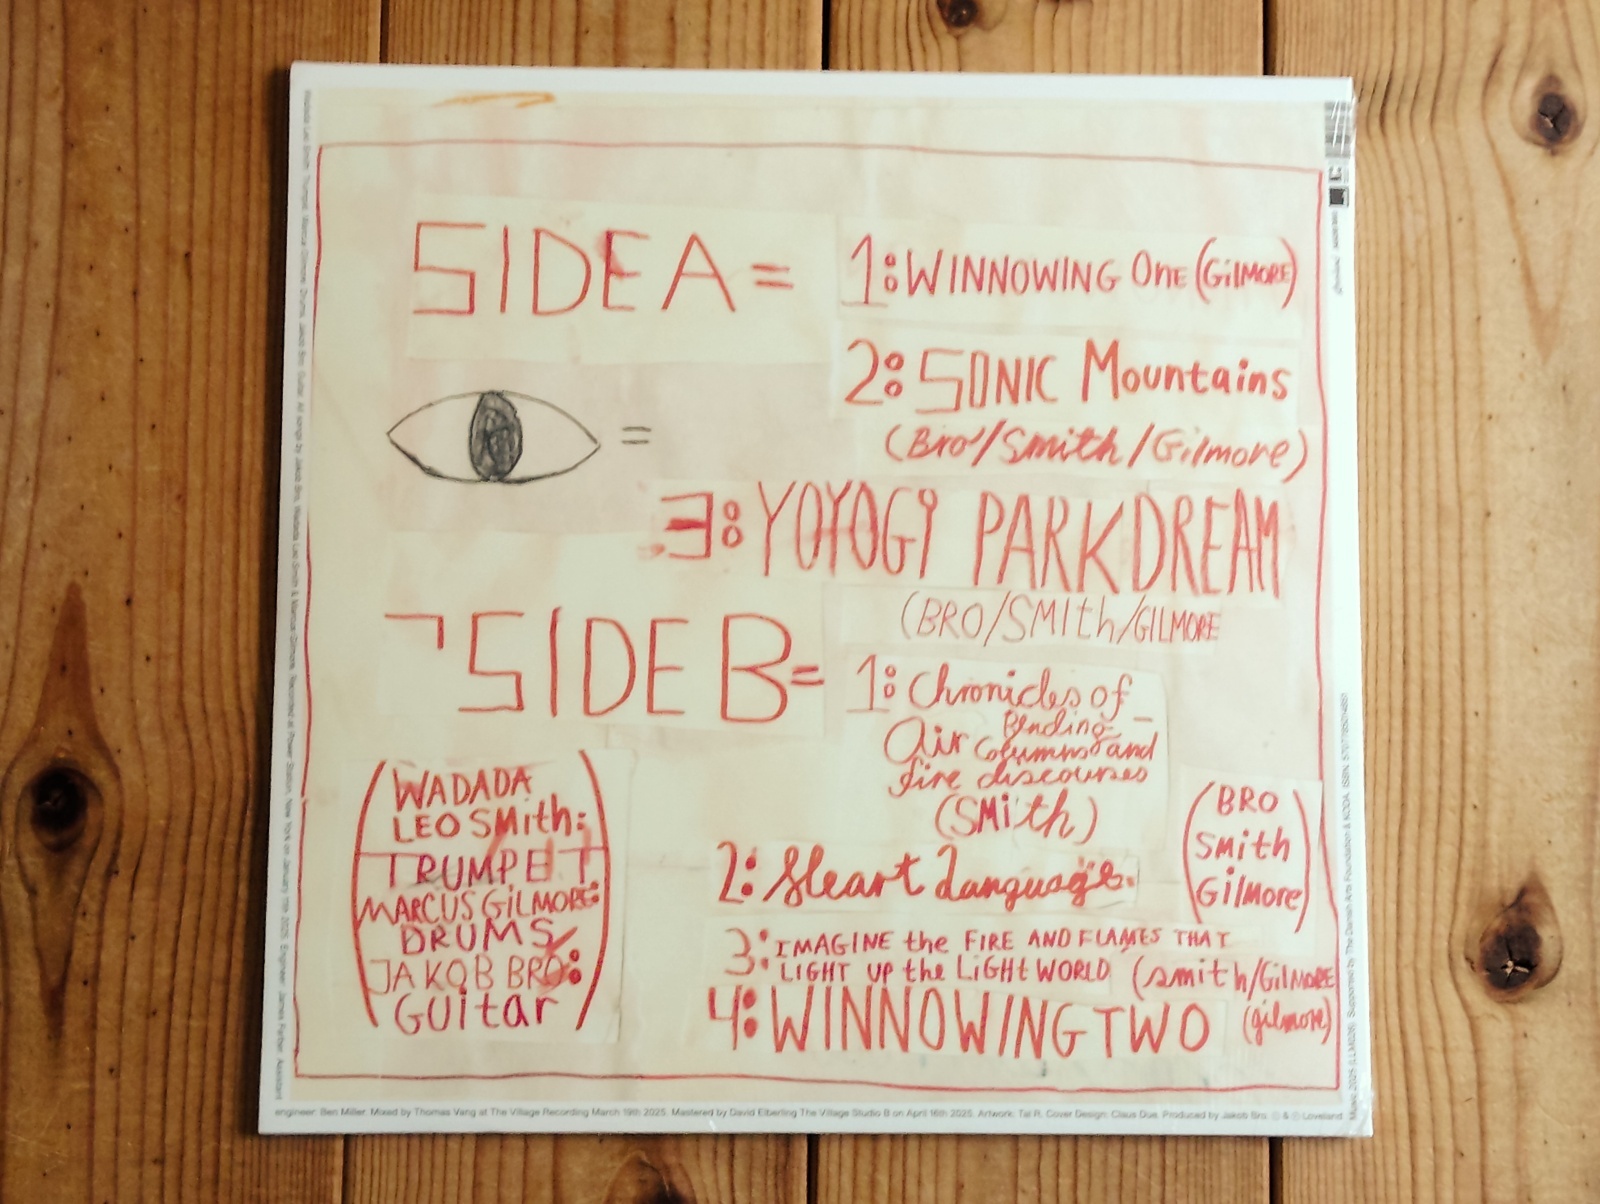 SIDE A = 1: WINNOWING ONE (GiLMORE)
2: SONIC Mountains
(Bro/Smith/Gilmore)
3: YOYOGI PARK DREAM
(BRO/SMIth/GILMORE
SIDE B = 1: Chronicles of
Bending
Air Columns and
fire discourses
(SMith)
2: Heart Language.
(BRO
Smith
Gilmore)
3: IMAGINE the FIRE AND FLAMES THAT
LIGHT UP the LiGHt WORLD (smith/GilMORE
4: WINNOWING TWO (gilmore)
(WADADA
LEO SMith:
TRUMPET
MARCUS GiLMORE:
DRUMS
JAKOB BRO:
GUitar)
Wadada Leo Smith: Trumpet. Marcus Gilmore: Drums. Jakob Bro: Guitar. All songs by Jakob Bro, Wadada Leo Smith & Marcus Gilmore. Recorded at Power Station, New York on January 11th 2025. Engineer: James Farber. Assistant
engineer: Ben Miller. Mixed by Thomas Vang at The Village Recording March 19th 2025. Mastered by David Elberling The Village Studio B on April 16th 2025. Artwork: Tal R. Cover Design: Claus Due. Produced by Jakob Bro. ℗ & © Loveland
Music 2025 (LLM026) Supported by The Danish Arts Foundation & KODA